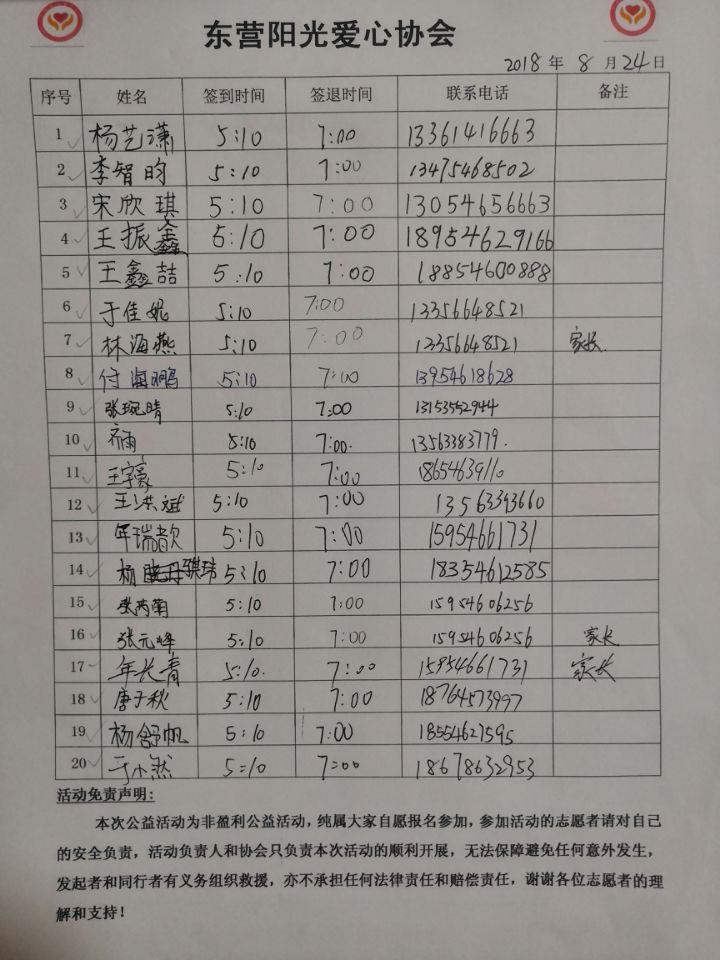 东营阳光爱心协会
2018 年 8 月 24 日
序号 姓名 签到时间 签退时间 联系电话 备注
1 杨艺潇 5:10 7:00 13361416663
2 李智昀 5:10 7:00 13475468502
3 宋欣琪 5:10 7:00 13054656663
4 王振鑫 5:10 7:00 18954629166
5 王鑫喆 5:10 7:00 18854600888
6 于佳妮 5:10 7:00 13356648521
7 林海燕 5:10 7:00 13356648521 家长
8 付海鹏 5:10 7:00 13954618628
9 张琬晴 5:10 7:00 13153552944
10 5:10 7:00 13563383779
11 王宇豪 5:10 7:00 18654639110
12 王洪斌 5:10 7:00 13563393660
13 年瑞歆 5:10 7:00 15954661731
14 杨骐玮 5:10 7:00 18354612585
15 张芮菊 5:10 7:00 15954606256
16 张元峰 5:10 7:00 15954606256 家长
17 年长青 5:10 7:00 15954661731 家长
18 唐于秋 5:10 7:00 18764573997
19 杨舒帆 5:10 7:00 18554627595
20 于小然 5:10 7:00 18678632953
活动免责声明:
本次公益活动为非盈利公益活动，纯属大家自愿报名参加，参加活动的志愿者请对自己
的安全负责，活动负责人和协会只负责本次活动的顺利开展，无法保障避免任何意外发生，
发起者和同行者有义务组织救援，亦不承担任何法律责任和赔偿责任，谢谢各位志愿者的理
解和支持！